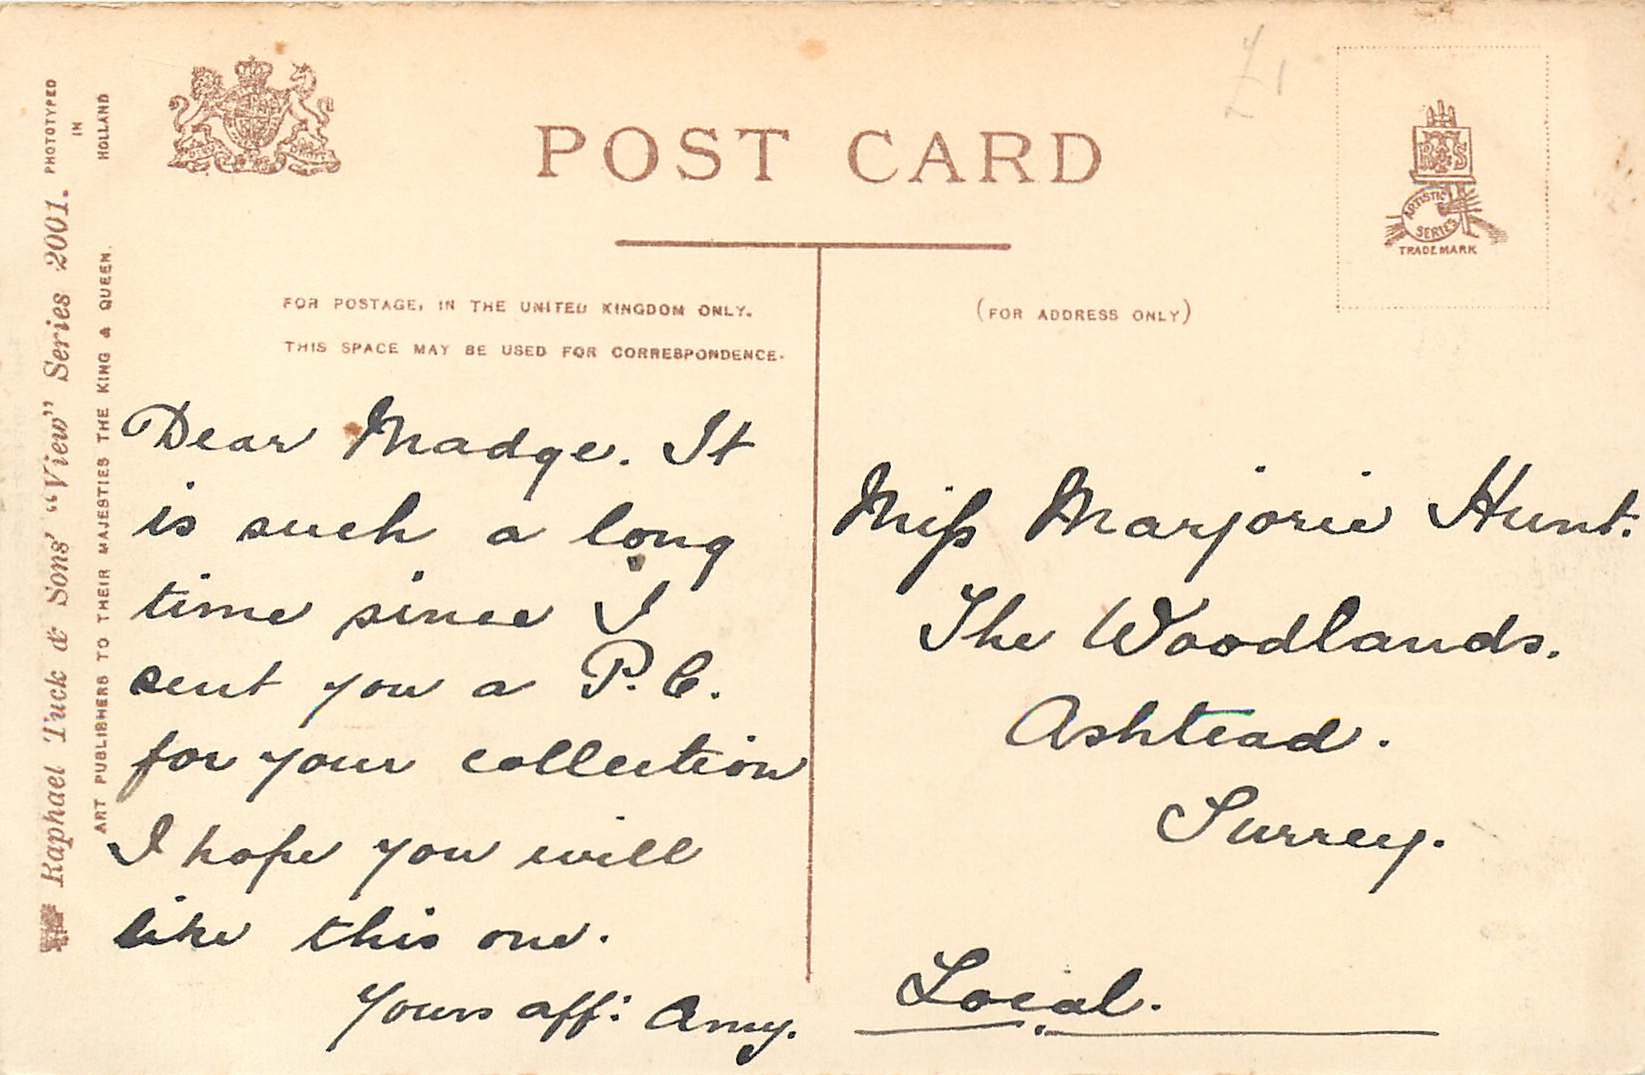 POST CARD
FOR POSTAGE, IN THE UNITED KINGDOM ONLY.
THIS SPACE MAY BE USED FOR CORRESPONDENCE.
(FOR ADDRESS ONLY)
£1
R T & S
ARTISTIC
SERIES
TRADE MARK
PHOTOTYPED
IN
HOLLAND
Raphael Tuck & Sons' "View" Series 2001.
ART PUBLISHERS TO THEIR MAJESTIES THE KING & QUEEN.
Dear Madge. It
is such a long
time since I
sent you a P.C.
for your collection
I hope you will
like this one.
Yours aff: Amy.
Miss Marjorie Hunt.
The Woodlands.
Ashtead.
Surrey.
Local.